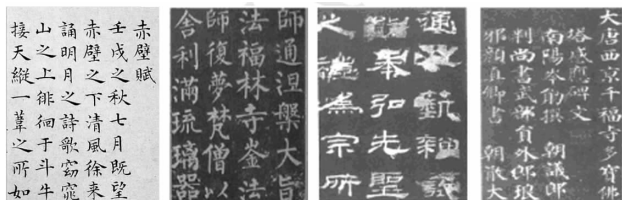 赤壁賦
壬戌之秋七月既望
赤壁之下清風徐来
誦明月之詩歌窈窕
山之上徘徊于斗牛
接天縱一葦之所如
師通涅槃大旨
法福林寺崟法
師復夢梵僧以
舍利滿琉璃器
通藝
奉弘先聖
之禮為宗所
大唐西京千福寺多寶佛
塔感應碑文
南陽岑勛撰 朝議郎
判尚書武部員外郎琅
邪顏真卿書 朝散大